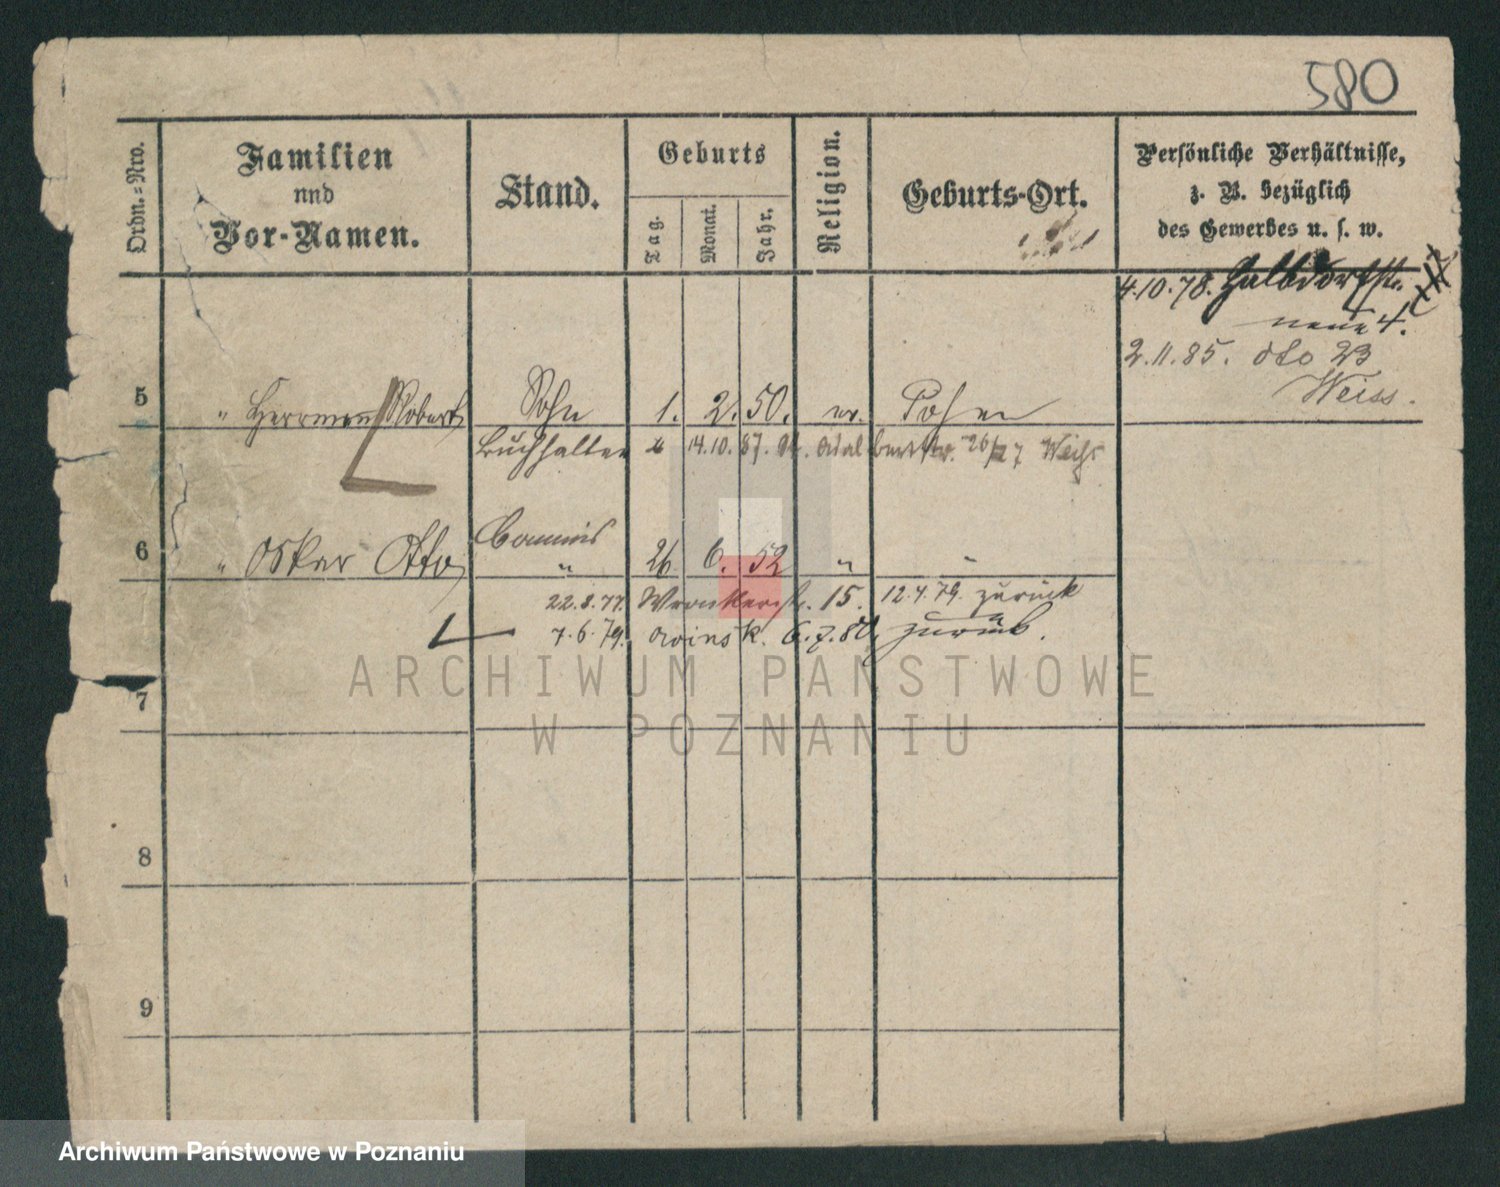 580
Ordn.-Nro.
Familien
und
Vor-Namen.
Stand.
Geburts
Tag.
Monat.
Jahr.
Religion.
Geburts-Ort.
Persönliche Verhältnisse,
z. B. bezüglich
des Gewerbes u. s. w.
4.10.78. Halbdorfstr.
neue 4.
2.11.85. dto 23
Weiss.
5 " Herrmann Robert Sohn 1. 2. 50. ev. Posen
Buchhalter 14.10.87. St. Adalbertstr. 26/27 Weiss
Commis
6 " Oskar Otto " 26. 6. 52 " "
22.8.77. Wronkerstr. 15. 12.4.79. zurück
7.6.79. 6.7.80. zurück.
7
8
9
ARCHIWUM PAŃSTWOWE
W POZNANIU
Archiwum Państwowe w Poznaniu